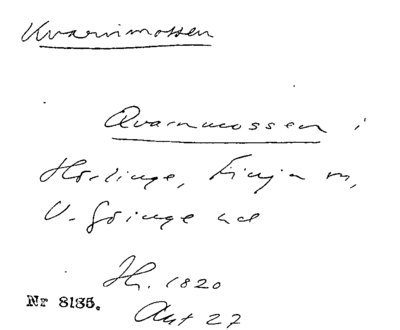 Kvarnmossen
Qvarnmossen i
Hörlinge, Finja sn,
V. Göinge hd
Jh. 1820
Akt 27
Nr 8135.